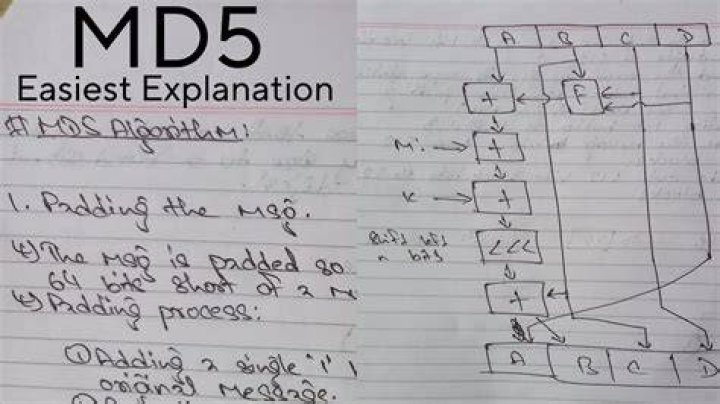 MD5
Easiest Explanation
# MD5 Algorithm:
1. Padding the msg.
↳) The msg is padded so
64 bits short of a M
↳) Padding process:
① Adding a single '1'
original message.
A B C D
+ F
Mi → +
K → +
bits
<<<
+
A B C D